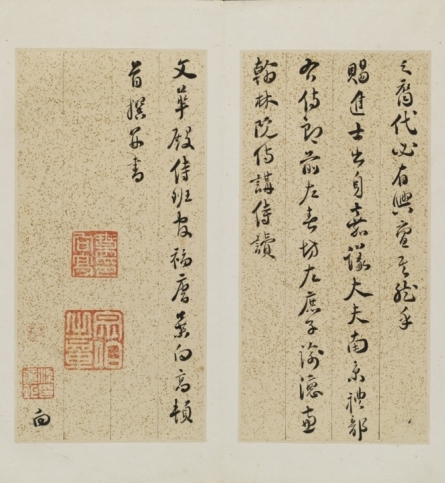 之裔代必有興亶其然乎
賜進士出身嘉議大夫南京禮部
右侍郎前左春坊左庶子諭德兼
翰林院侍講侍讀
文華殿侍班官福唐葉向高頓
首撰并書
向